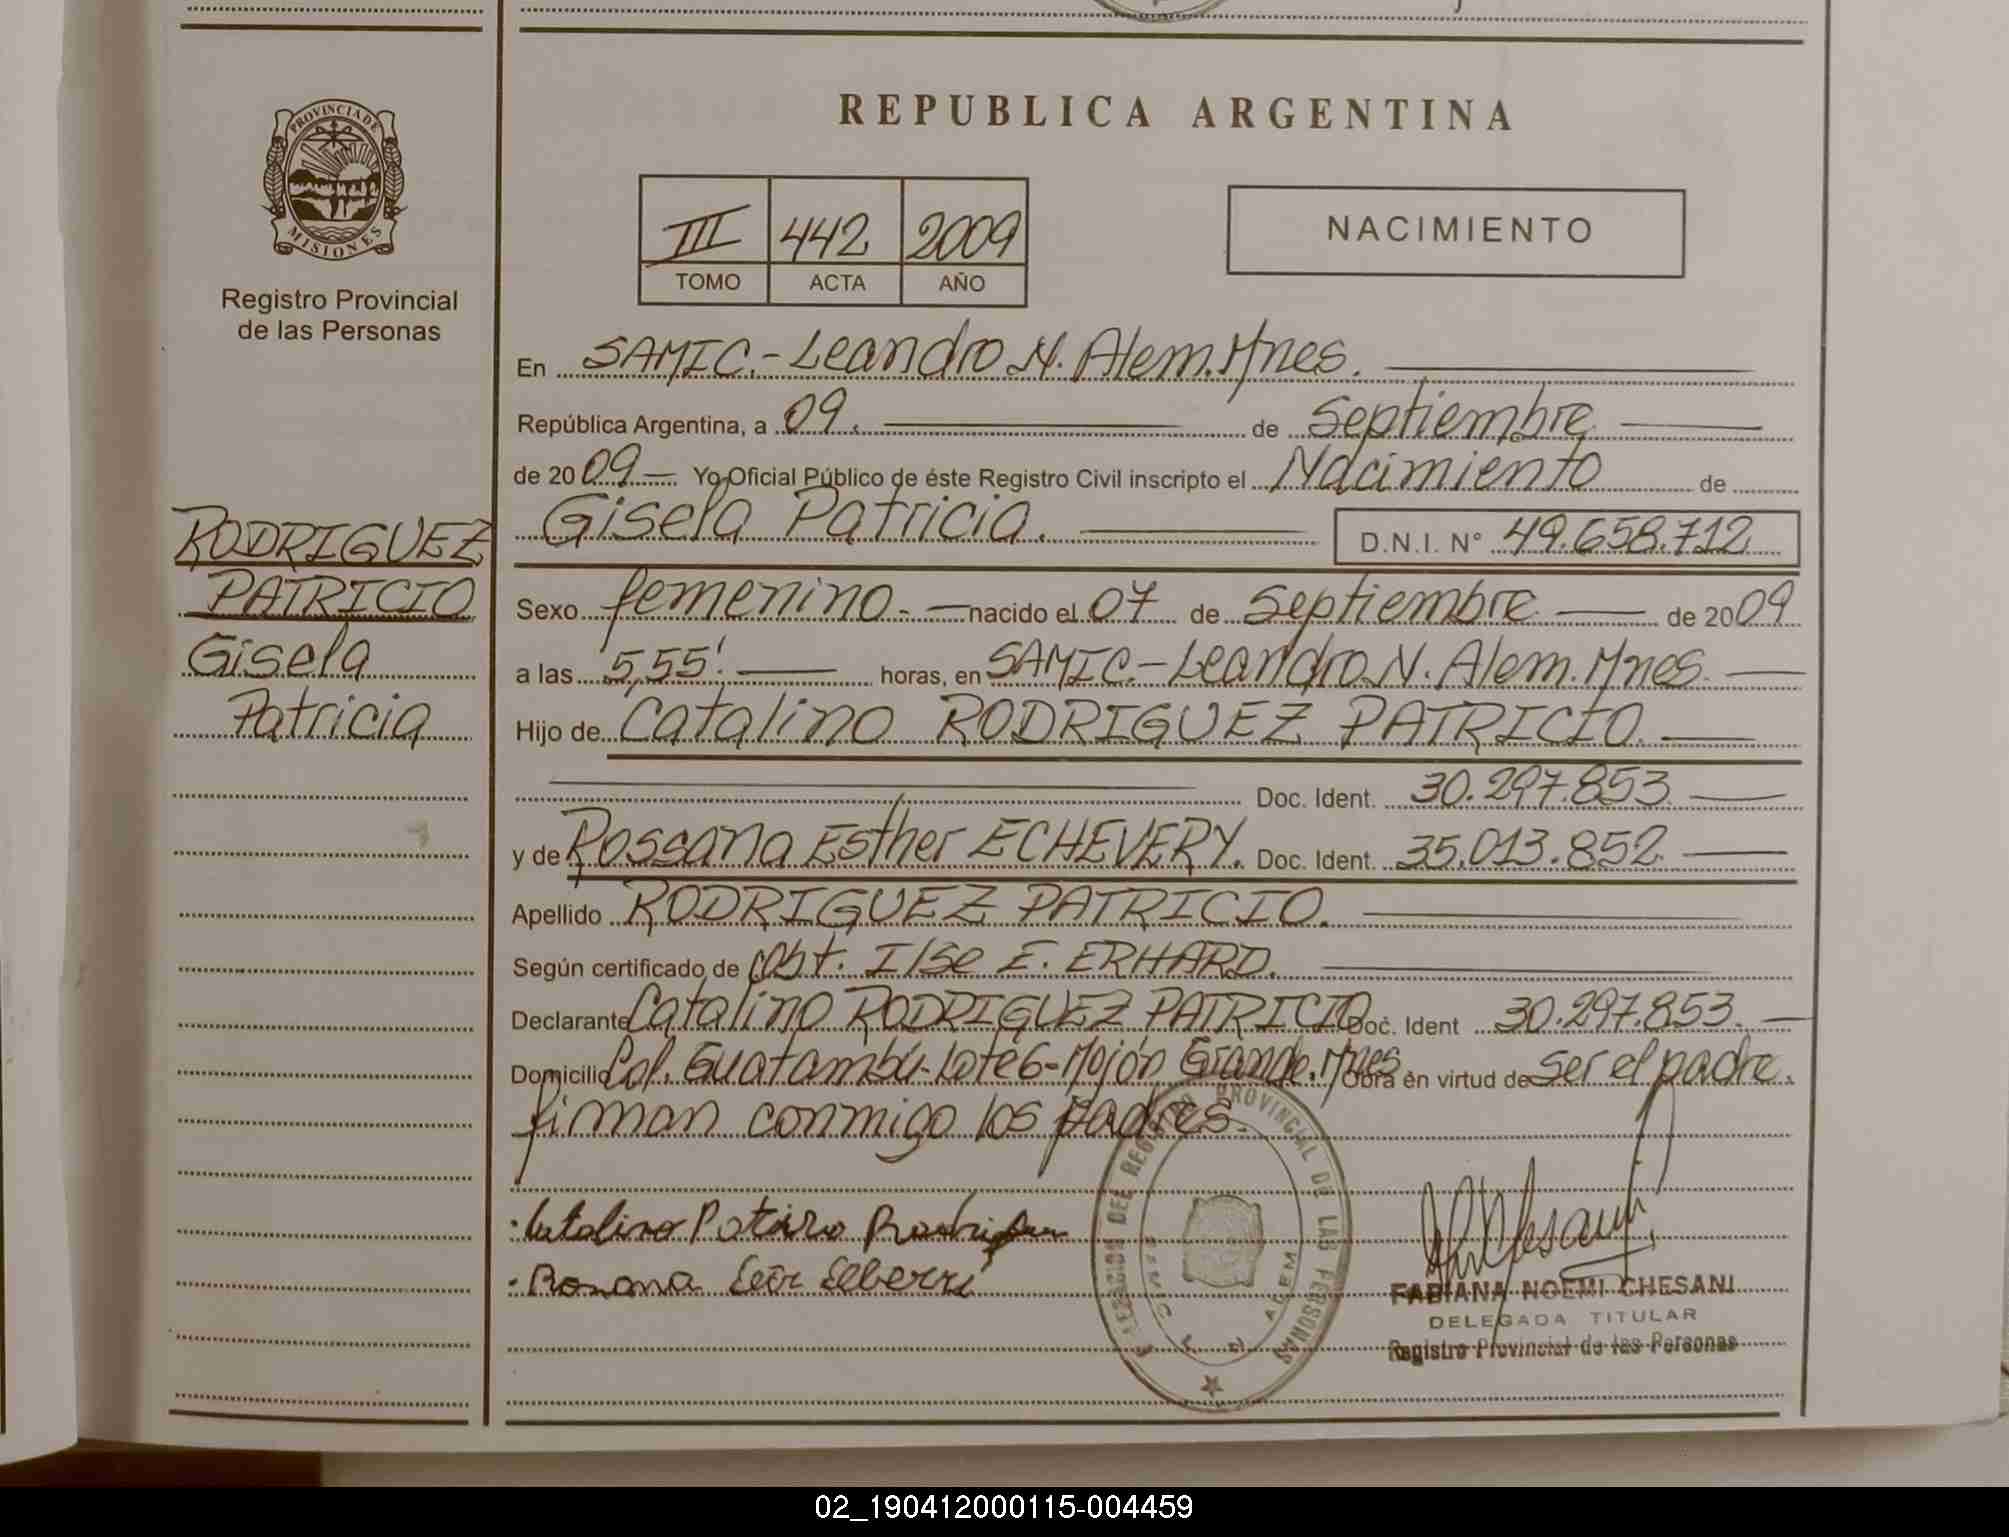 PROVINCIA DE
MISIONES
Registro Provincial
de las Personas
RODRIGUEZ
PATRICIO
Gisela
Patricia
REPUBLICA ARGENTINA
III 442 2009
TOMO ACTA AÑO
NACIMIENTO
En SAMIC.- Leandro N. Alem. Mnes.
República Argentina, a 09. de Septiembre
de 2009 Yo Oficial Público de éste Registro Civil inscripto el Nacimiento de
Gisela Patricia. D.N.I. N° 49.658.712
Sexo femenino.- nacido el 07 de Septiembre de 2009
a las 5,55'. horas, en SAMIC.- Leandro N. Alem. Mnes.
Hijo de Catalino RODRIGUEZ PATRICIO.
Doc. Ident. 30.297.853
y de Rossana Esther ECHEVERY. Doc. Ident. 35.013.852
Apellido RODRIGUEZ PATRICIO.
Según certificado de Obt. Ilse E. ERHARD.
Declarante Catalino RODRIGUEZ PATRICIO Doc. Ident 30.297.853.
Domicilio Col. Guatambú- Lote 6- Mojón Grande. Mnes. Obra en virtud de ser el padre.
firman conmigo los padres.
Catalino Rodriguez
Rosana
FABIANA NOEMI CHESANI
DELEGADA TITULAR
Registro Provincial de las Personas
DEL REGISTRO PROVINCIAL DE LAS PERSONAS
SAMIC L. N. ALEM
02_190412000115-004459